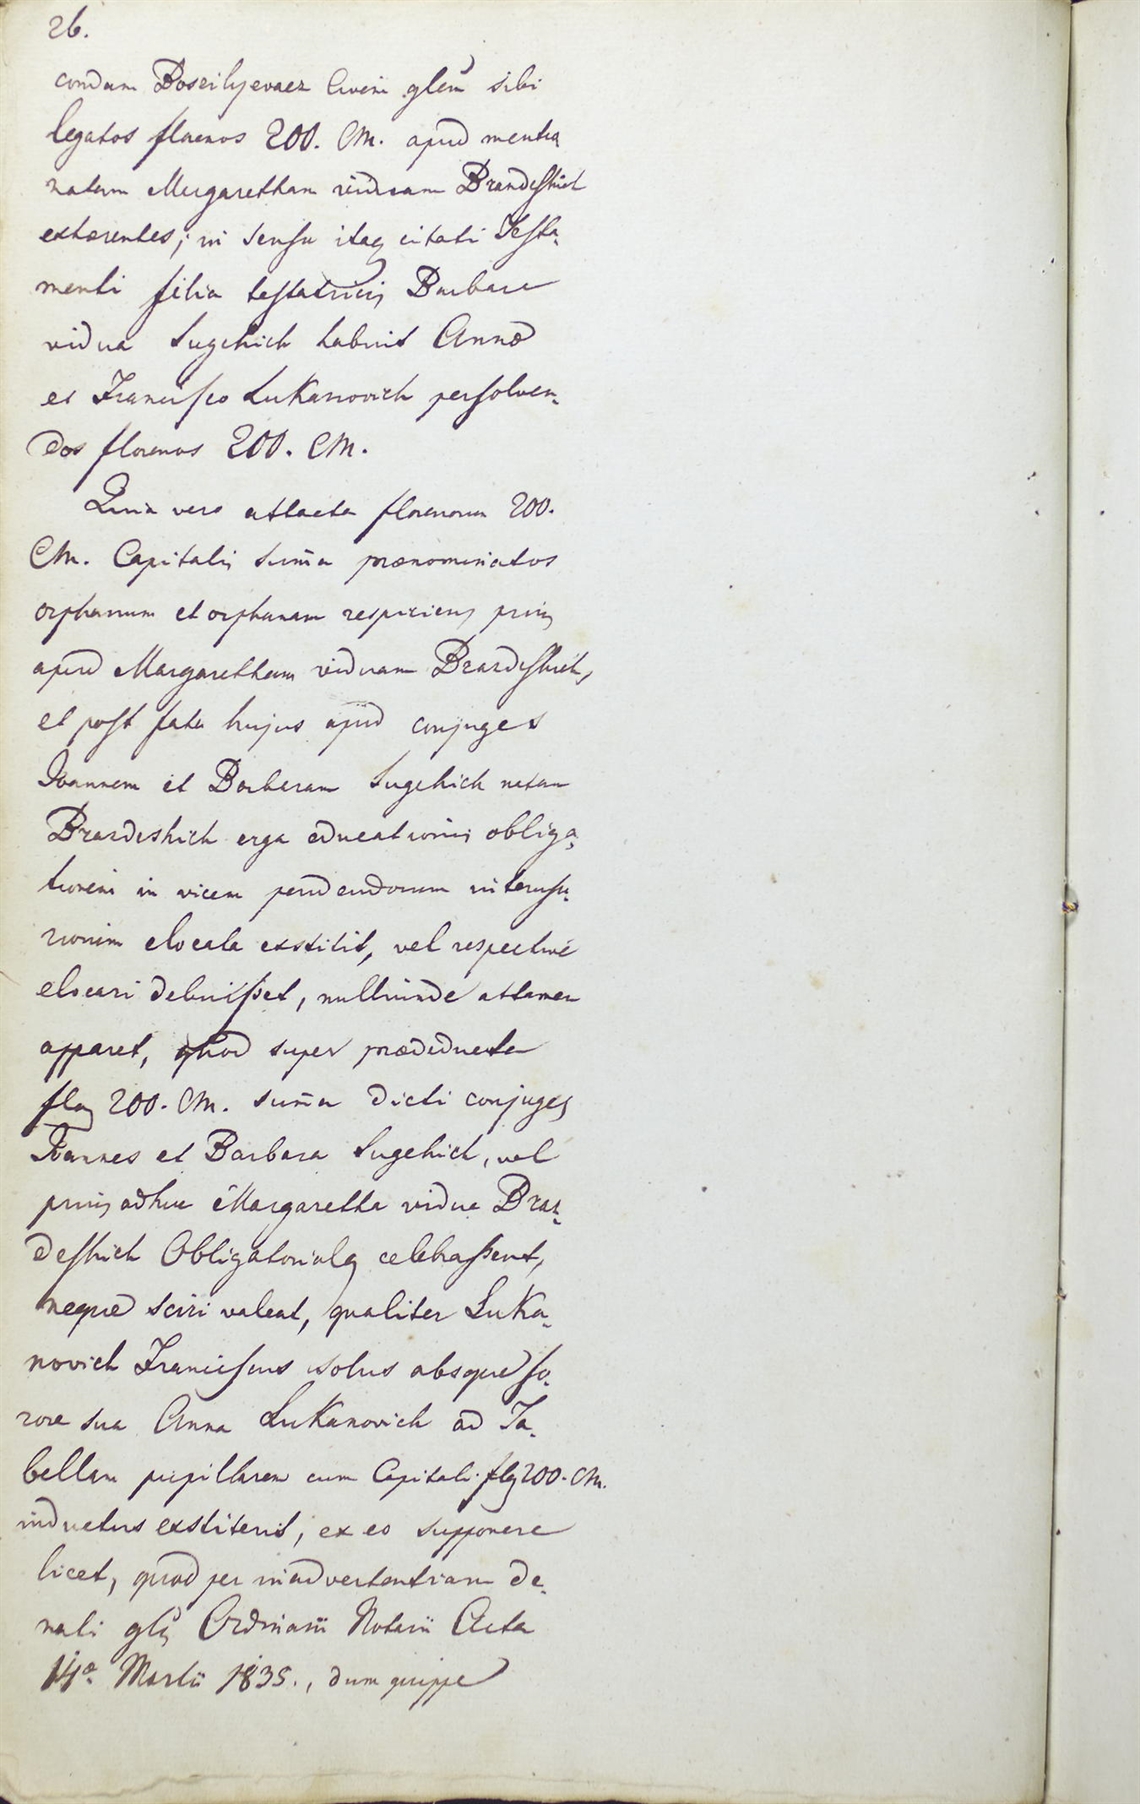 26.
condam Boszilyevacz Civem glem sibi
legatos florenos 200. CM. apud mentio
natam Margaretham viduam Brandeshich
exhaerentes; in sensu itaq citati Testa„
menti filia testatricis Barbara
vidua Sugehich habuit Annae
et Francisco Lukanovich persolven„
dos florenos 200. CM.
Quia vero attacta florenorum 200.
CM. Capitalis summa praenominatos
orphanum et orphanam respiciens prius
apud Margaretham viduam Brandeshich,
et post fata hujus apud conjuges
Joannem et Barbaram Sugehich natam
Brandeshich erga educationis obliga„
tionem in vicem pendendorum interusu„
riorum elocata exstitit, vel respective
elocari debuisset, nullunde attamen
apparet, quod super praededucta
flor 200. CM. summa dicti conjuges
Joannes et Barbara Sugehich, vel
prius adhuc Margaretha vidua Bran„
deshich Obligatorialq celebrassent,
neque sciri valeat, qualiter Luka„
novich Franciscus solus absque so„
rore sua Anna Lukanovich ad Ta„
bellam pupillarem cum Capitali flor 200. CM.
inductus exstiterit; ex eo supponere
licet, quod per inadvertentiam de„
nati gls Ordinarii Notarii Acta
14a Martii 1835., dum quippe